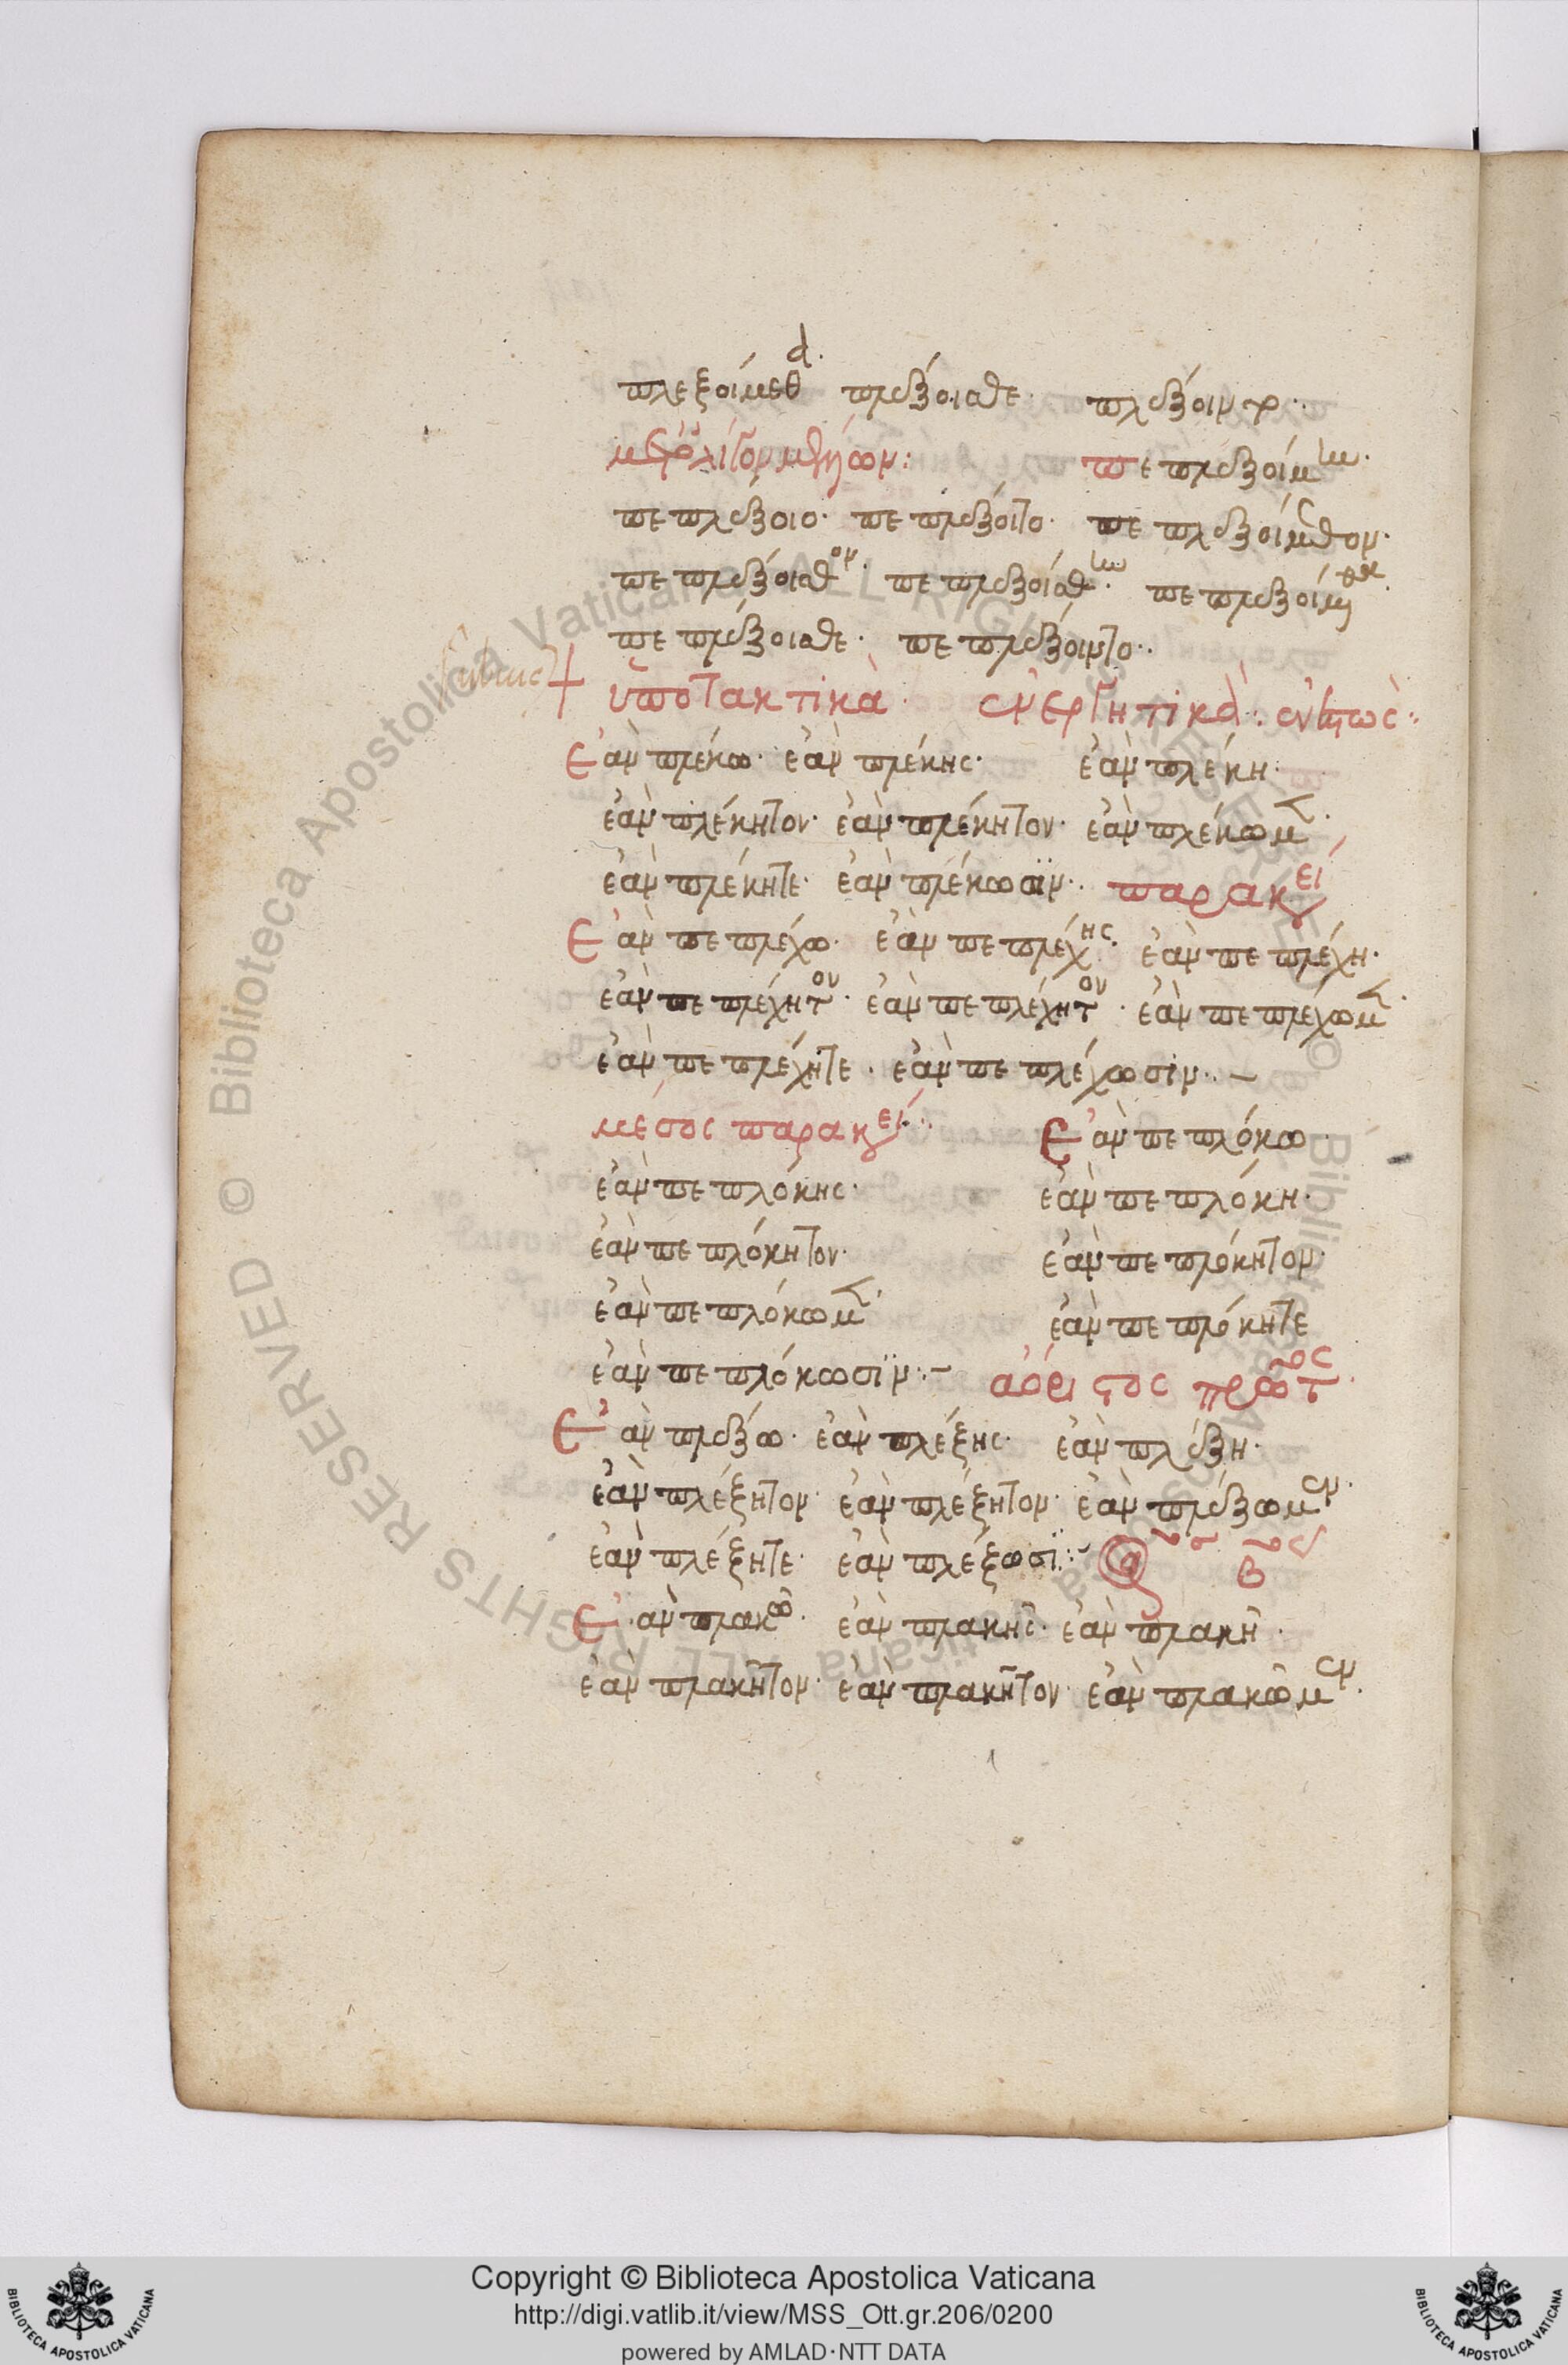 πλεξοίμεθα· πλέξοισθε· πλέξοιντο··
μετ' ὀλίγον μέλλων: πεπλεξοίμην·
πεπλέξοιο· πεπλέξοιτο· πεπλεξοίμεθον·
πεπλέξοισθον· πεπλεξοίσθην· πεπλεξοίμεθα·
πεπλέξοισθε· πεπλέξοιντο··
ὑποτακτικὰ· ἐνεργητικὰ· ἐνεστὼς··
Ἐὰν πλέκω· ἐὰν πλέκης· ἐὰν πλέκη·
ἐὰν πλέκητον· ἐὰν πλέκητον· ἐὰν πλέκωμεν·
ἐὰν πλέκητε· ἐὰν πλέκωσϊν·· παρακεί
Ἐὰν πεπλέχω· ἐὰν πεπλέχης· ἐὰν πεπλέχη·
ἐὰν πεπλέχητον· ἐὰν πεπλέχητον· ἐὰν πεπλέχωμεν·
ἐὰν πεπλέχητε· ἐὰν πεπλέχωσιν··–
μέσος παρακεί·· Ἐὰν πεπλόκω·
ἐὰν πεπλόκης· ἐὰν πεπλόκη·
ἐὰν πεπλόκητον· ἐὰν πεπλόκητον·
ἐὰν πεπλόκωμεν· ἐὰν πεπλόκητε
ἐὰν πεπλόκωσϊν··– ἀόριστος πρῶτος·
Ἐὰν πλέξω· ἐὰν πλέξης· ἐὰν πλέξη·
ἐὰν πλέξητον· ἐὰν πλέξητον· ἐὰν πλέξωμεν·
ἐὰν πλέξητε· ἐὰν πλέξωσϊ··–
Ἐὰν πλακῶ· ἐὰν πλακῆς· ἐὰν πλακῆ·
ἐὰν πλακῆτον· ἐὰν πλακῆτον· ἐὰν πλακῶμεν·
Copyright © Biblioteca Apostolica Vaticana
http://digi.vatlib.it/view/MSS_Ott.gr.206/0200
powered by AMLAD·NTT DATA
BIBLIOTECA APOSTOLICA VATICANA
BIBLIOTECA APOSTOLICA VATICANA
© Biblioteca Apostolica Vaticana ALL RIGHTS RESERVED